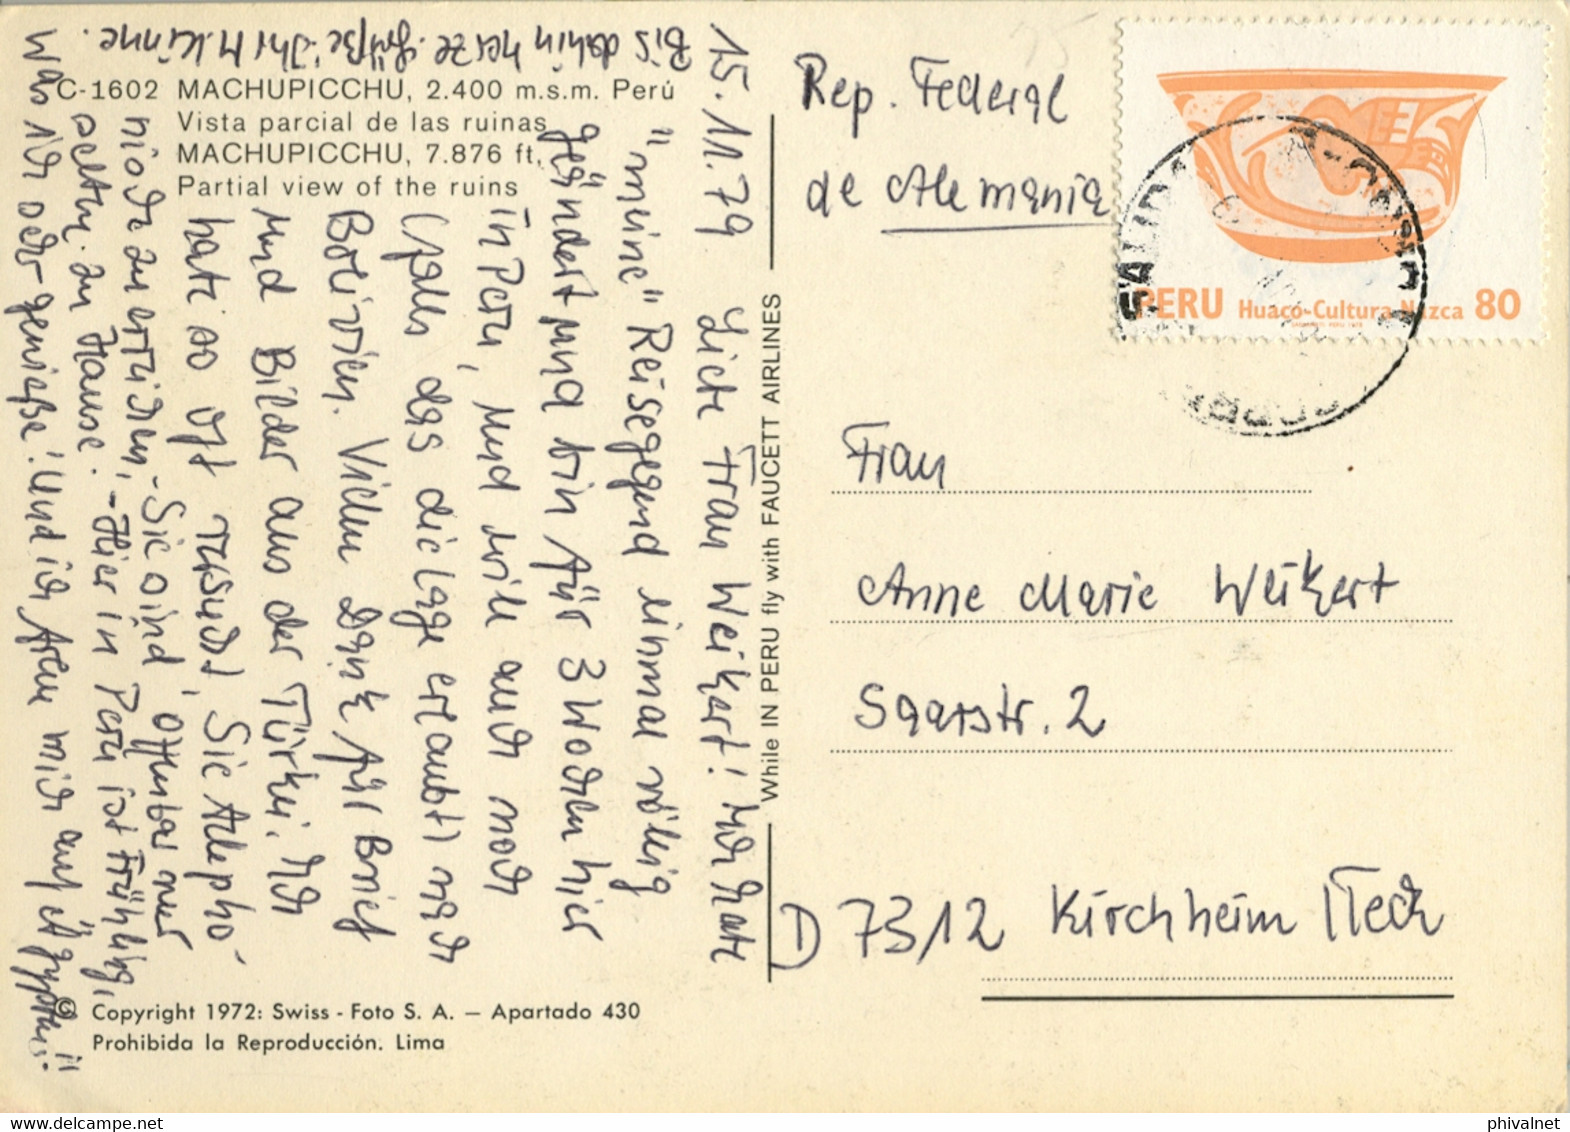 C-1602 MACHUPICCHU, 2.400 m.s.m. Perú
Vista parcial de las ruinas
MACHUPICCHU, 7.876 ft,
Partial view of the ruins
15.11.79 Liebe Frau Weikert! Ich habe
"meine" Reisegegend einmal völlig
geändert und bin für 3 Wochen hier
in Peru, und will auch noch
(falls das die Lage erlaubt) nach
Bolivien. Vielen Dank für Brief
und Bilder aus der Türkei. Ich
hatte so oft versucht, Sie telepho-
nisch zu erreichen, - Sie sind offenbar nur
selten zu Hause. - Hier in Peru ist Frühling,
was ich sehr genieße! Und ich freue mich auf "Ägypten"!
Bis dahin herzl. Grüße Ihr M. Kinne.
© Copyright 1972: Swiss - Foto S. A. — Apartado 430
Prohibida la Reproducción. Lima
While IN PERU fly with FAUCETT AIRLINES
Rep. Federal
de Alemania
PERU Huaco-Cultura Nazca 80
Frau
Anne Marie Weikert
Saarstr. 2
D 7312 Kirchheim/Teck
phivalnet